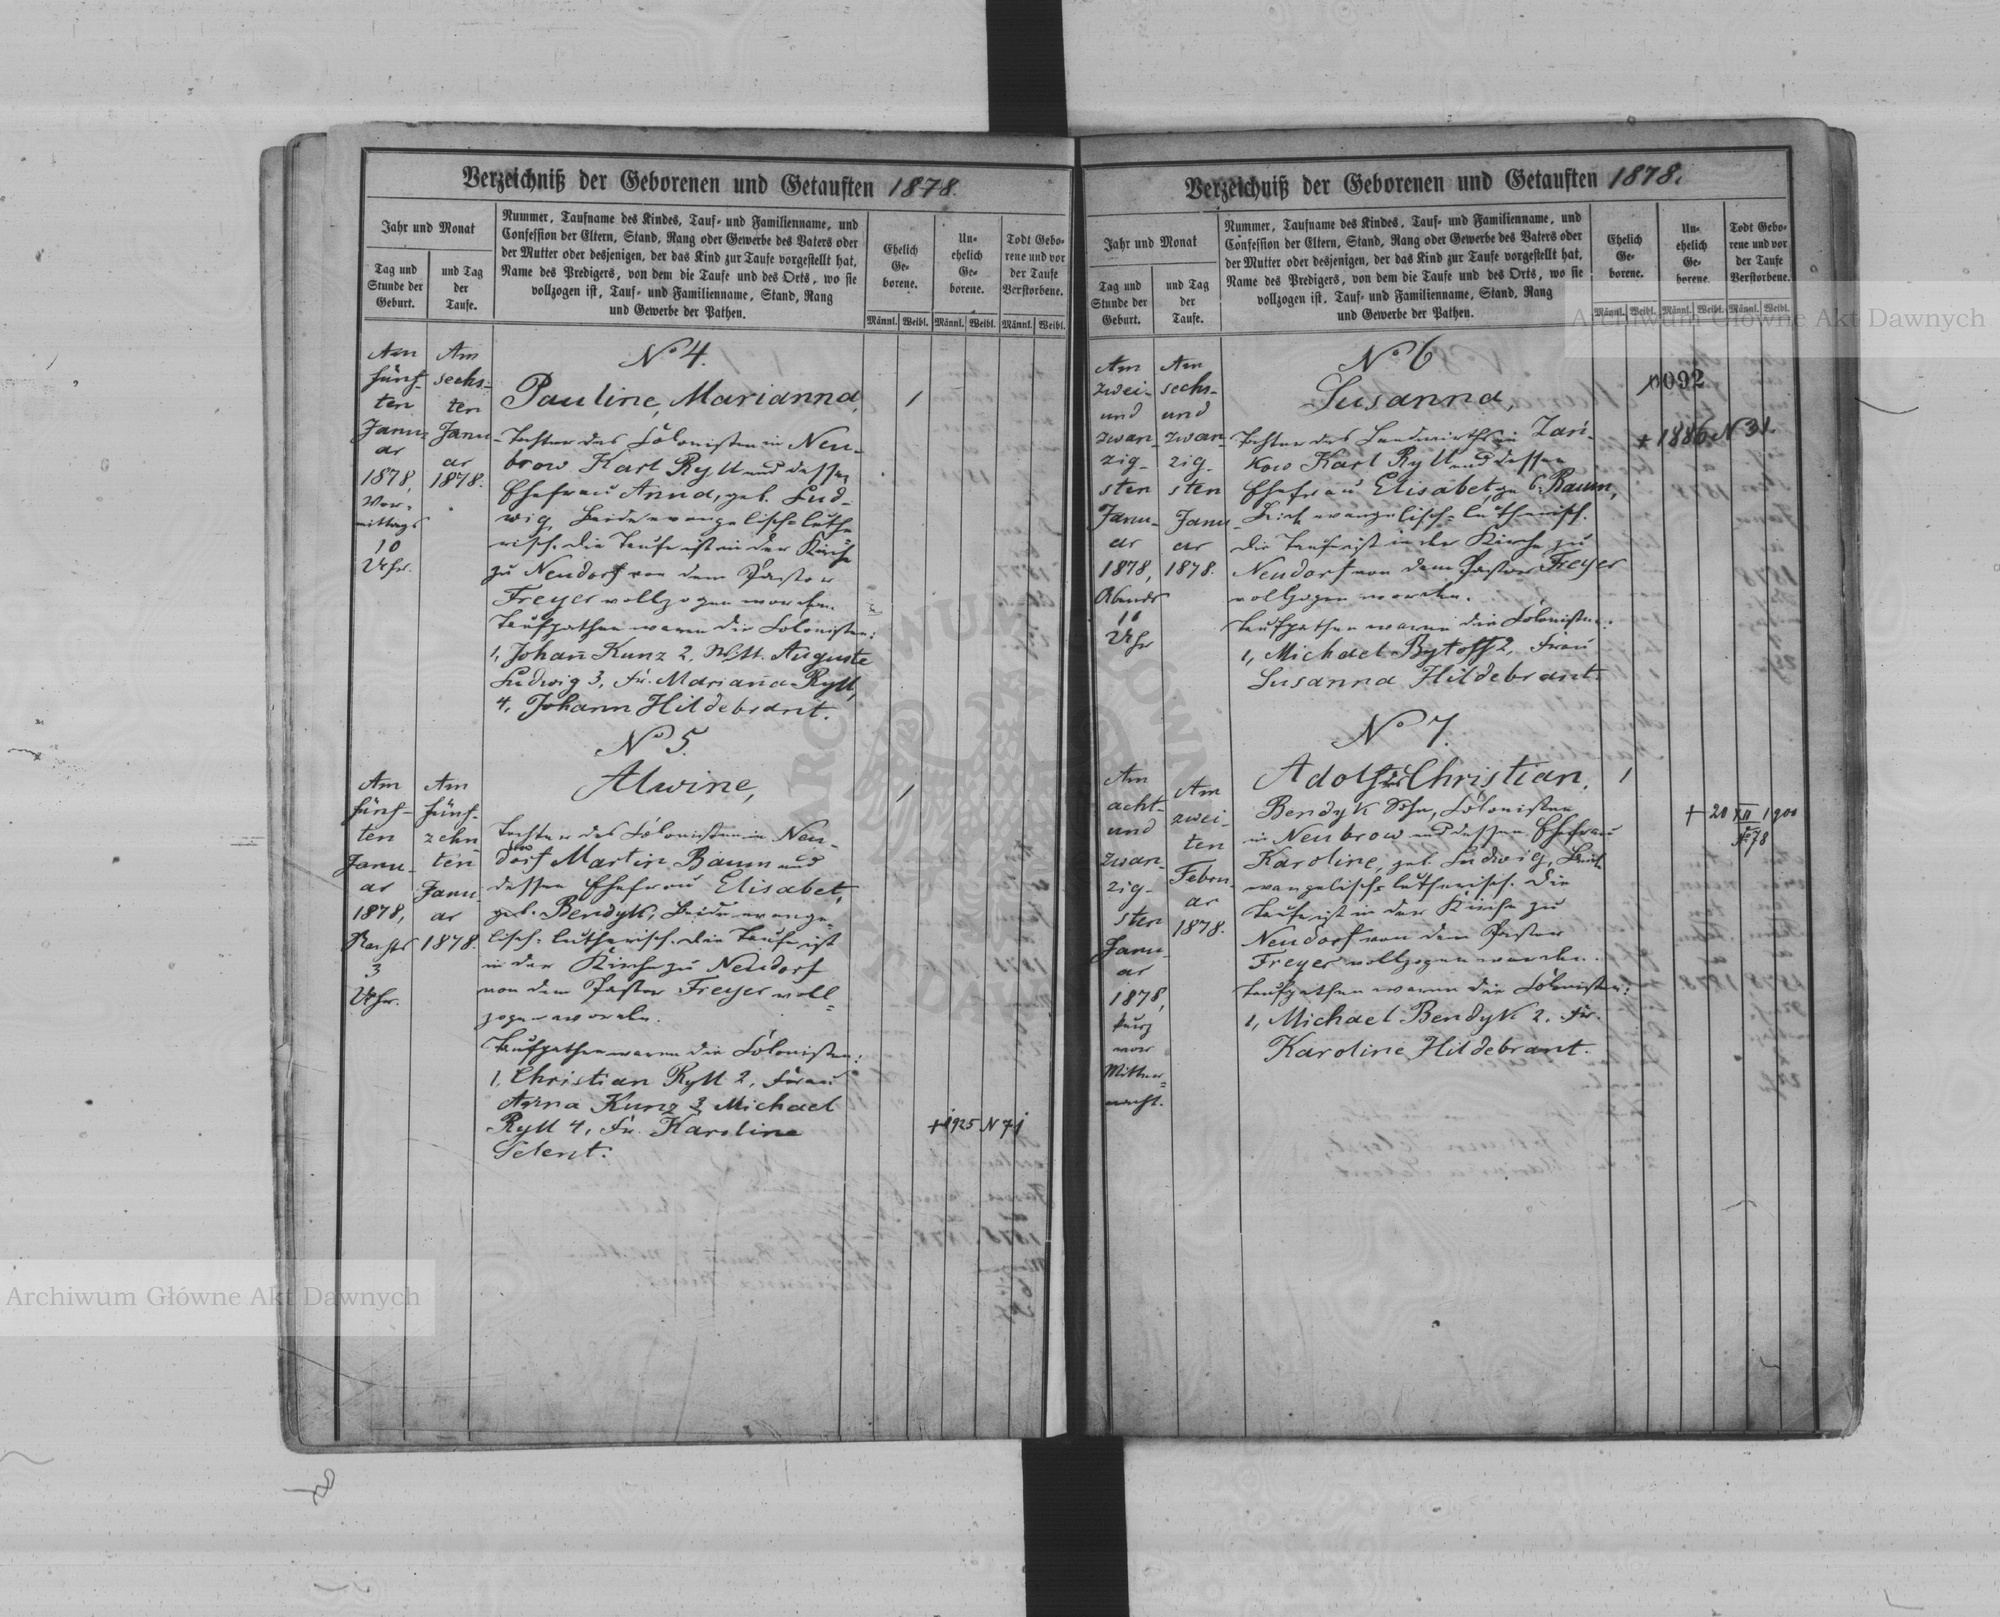 Verzeichniß der Geborenen und Getauften 1878.
Jahr und Monat
Tag und
Stunde der
Geburt.
und Tag
der
Taufe.
Nummer, Taufname des Kindes, Tauf- und Familienname, und
Confession der Eltern, Stand, Rang oder Gewerbe des Vaters oder
der Mutter oder desjenigen, der das Kind zur Taufe vorgestellt hat,
Name des Predigers, von dem die Taufe und des Orts, wo sie
vollzogen ist, Tauf- und Familienname, Stand, Rang
und Gewerbe der Pathen.
Ehelich
Ge-
borene.
Un-
ehelich
Ge-
borene.
Todt Gebo-
rene und vor
der Taufe
Verstorbene.
Männl. Weibl. Männl. Weibl. Männl. Weibl.
Am
fünf-
ten
Janu-
ar
1878,
Vor-
mittags
10
Uhr.
Am
sechs-
ten
Janu-
ar
1878.
No 4.
Pauline, Marianna,
1
Tochter des Colonisten in Neu-
brow Karl Ryll und dessen
Ehefrau Anna, geb. Lud-
wig, Beide evangelisch-luthe
risch. Die Taufe ist in der Kirche
zu Neudorf von dem Pastor
Freyer vollzogen worden.
Taufpathen waren die Colonisten:
1, Johann Kunz 2, Auguste
Ludwig 3, Fr. Marianna Ryll,
4, Johann Hildebrant.
Am
fünf-
ten
Janu-
ar
1878,
Nachts
3
Uhr.
Am
fünf-
zehn-
ten
Janu-
ar
1878.
No 5
Alwine,
1
Tochter des Colonisten in Neu-
dorf Martin Baum und
dessen Ehefrau Elisabet,
geb. Bendyk, Beide evange-
lisch-lutherisch. Die Taufe ist
in der Kirche zu Neudorf
von dem Pastor Freyer voll-
zogen worden.
Taufpathen waren die Colonisten:
1, Christian Ryll 2, Frau
Anna Kunz 3, Michael
Ryll 4, Fr. Karoline
Selent.
+ 1925 N 71
Verzeichniß der Geborenen und Getauften 1878.
Jahr und Monat
Tag und
Stunde der
Geburt.
und Tag
der
Taufe.
Nummer, Taufname des Kindes, Tauf- und Familienname, und
Confession der Eltern, Stand, Rang oder Gewerbe des Vaters oder
der Mutter oder desjenigen, der das Kind zur Taufe vorgestellt hat,
Name des Predigers, von dem die Taufe und des Orts, wo sie
vollzogen ist, Tauf- und Familienname, Stand, Rang
und Gewerbe der Pathen.
Ehelich
Ge-
borene.
Un-
ehelich
Ge-
borene.
Todt Gebo-
rene und vor
der Taufe
Verstorbene.
Männl. Weibl. Männl. Weibl. Männl. Weibl.
Am
zwei-
und
zwan-
zig-
sten
Janu-
ar
1878,
Abends
10
Uhr
Am
sechs-
und
zwan-
zig-
sten
Janu-
ar
1878.
No 6
Susanna,
092
+ 1886 N 31.
Tochter des Landwirths in Zari-
kow Karl Ryll und dessen
Ehefrau Elisabet, geb. Baum,
Beide evangelisch-lutherisch.
Die Taufe ist in der Kirche zu
Neudorf von dem Pastor Freyer
vollzogen worden.
Taufpathen waren die Colonisten:
1, Michael 2, Frau
Susanna Hildebrant.
Am
acht
und
zwan-
zig-
sten
Janu-
ar
1878,
kurz
vor
Mitter-
nacht.
Am
zwei-
ten
Febru-
ar
1878.
No 7.
Adolf Christian,
1
Bendyk Sohn, Colonisten
in Neubrow und dessen Ehefrau
Karoline, geb. Ludwig, Beide
evangelisch-lutherisch. Die
Taufe ist in der Kirche zu
Neudorf von dem Pastor
Freyer vollzogen worden.
Taufpathen waren die Colonisten:
1, Michael Bendyk 2, Fr.
Karoline Hildebrant.
+ 20 XII 1900
No 78
Archiwum Główne Akt Dawnych
Archiwum Główne Akt Dawnych